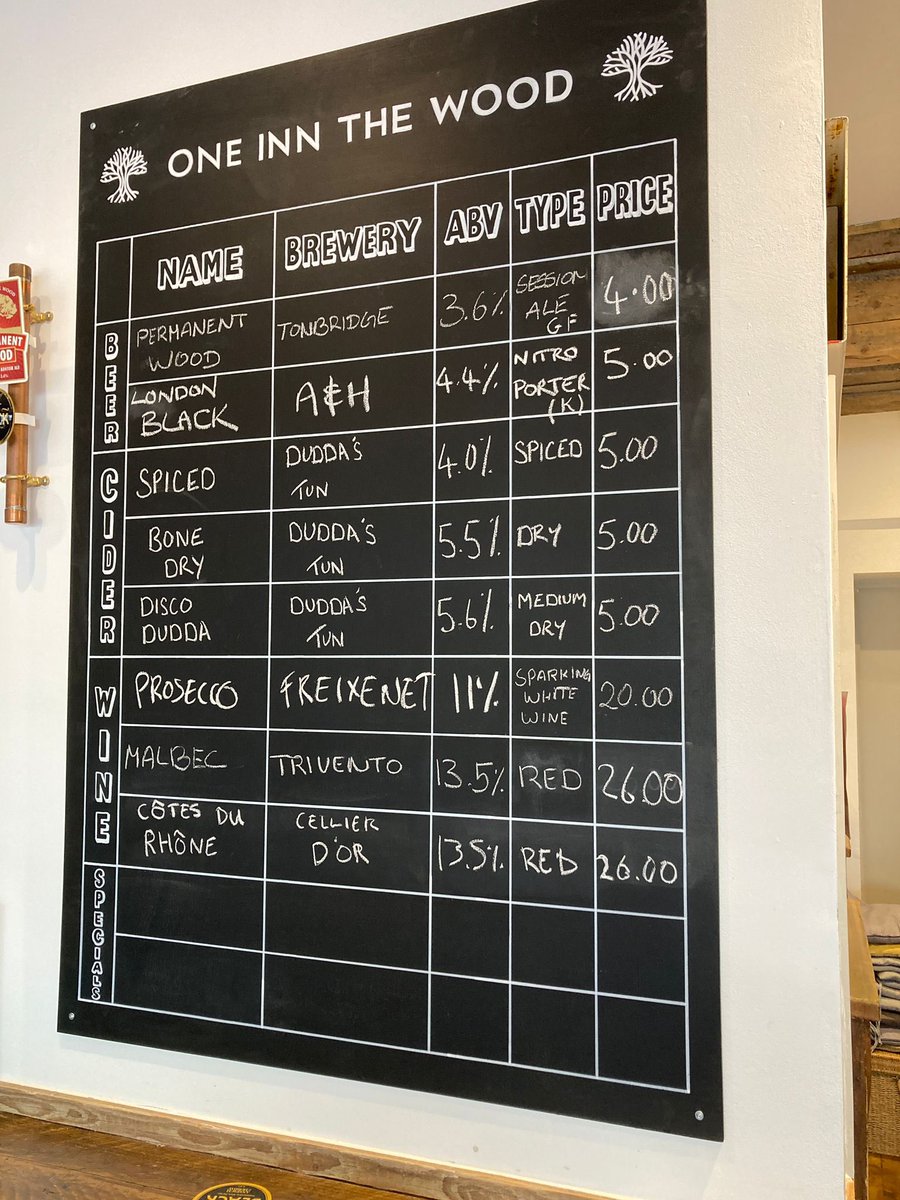 ONE INN THE WOOD
NAME BREWERY ABV TYPE PRICE
BEER
PERMANENT WOOD TONBRIDGE 3.6% SESSION ALE GF 4.00
LONDON BLACK A&H 4.4% NITRO PORTER (K) 5.00
CIDER
SPICED DUDDA'S TUN 4.0% SPICED 5.00
BONE DRY DUDDA'S TUN 5.5% DRY 5.00
DISCO DUDDA DUDDA'S TUN 5.6% MEDIUM DRY 5.00
WINE
PROSECCO FREIXENET 11% SPARKING WHITE WINE 20.00
MALBEC TRIVENTO 13.5% RED 26.00
CÔTES DU RHÔNE CELLIER D'OR 13.5% RED 26.00
SPECIALS
BLACK